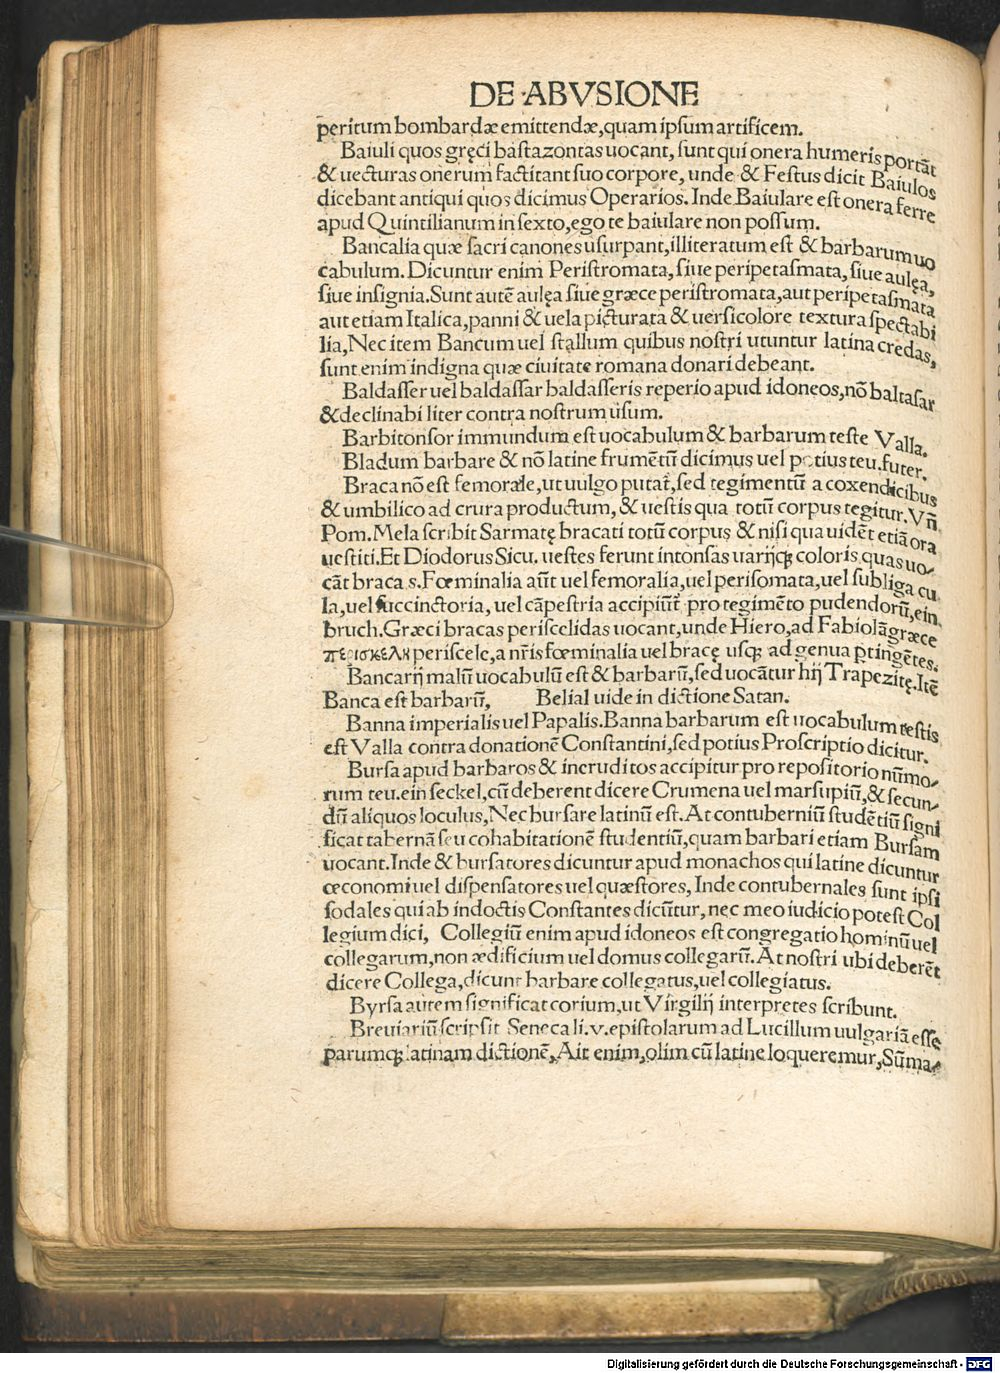 DE ABVSIONE
peritum bombardæ emittendæ, quam ipsum artificem.
Baiuli quos gręci bastazontas uocant, sunt qui onera humeris portāt
& uecturas onerum factitant suo corpore, unde & Festus dicit Baiulos
dicebant antiqui quos dicimus Operarios. Inde Baiulare est onera ferre
apud Quintilianum in sexto, ego te baiulare non possum.
Bancalia quæ sacri canones usurpant, illiteratum est & barbarum uo
cabulum. Dicuntur enim Peristromata, siue peripetasmata, siue aulęa,
siue insignia. Sunt autē aulęa siue græce peristromata, aut peripetasmata
aut etiam Italica, panni & uela picturata & uersicolore textura spectabi
lia, Nec item Bancum uel stallum quibus nostri utuntur latina credas,
sunt enim indigna quæ ciuitate romana donari debeant.
Baldasser uel baldassar baldasseris reperio apud idoneos, nō baltasar
& declinabiliter contra nostrum usum.
Barbitonsor immundum est uocabulum & barbarum teste Valla.
Bladum barbare & nō latine frumētū dicimus uel potius teu. futer.
Braca nō est femorale, ut uulgo putat̄, sed tegimentū a coxendicibus
& umbilico ad crura productum, & uestis qua totū corpus tegitur. Vn̄
Pom. Mela scribit Sarmatę bracati totū corpus & nisi qua uidēt etiā ora
uestiti. Et Diodorus Sicu. uestes ferunt intonsas uarijq; coloris quas uo-
cāt bracas. Fœminalia aūt uel femoralia, uel perisomata, uel subliga cu
la, uel succinctoria, uel cāpestria accipiūt̄ pro tegimēto pudendorū, ein
bruch. Græci bracas periscelidas uocant, unde Hiero, ad Fabiolā græce
περισκελη periscele, a nr̄is fœminalia uel bracę usq; ad genua ptingētes.
Bancarij malū uocabulū est & barbarū, sed uocātur hij Trapezitę. Itē
Banca est barbarū, Belial uide in dictione Satan.
Banna imperialis uel Papalis. Banna barbarum est uocabulum testis
est Valla contra donationē Constantini, sed potius Proscriptio dicitur.
Bursa apud barbaros & incruditos accipitur pro repositorio nūmo-
rum teu. ein seckel, cū deberent dicere Crumena uel marsupiū, & secun-
dū aliquos loculus, Nec bursare latinū est. At contuberniū studētiū signi
ficat tabernā seu cohabitationē studentiū, quam barbari etiam Bursam
uocant. Inde & bursatores dicuntur apud monachos qui latine dicuntur
œconomi uel dispensatores uel quæstores, Inde contubernales sunt ipsi
sodales qui ab indoctis Constantes dicūtur, nec meo iudicio potest Col
legium dici, Collegiū enim apud idoneos est congregatio hominū uel
collegarum, non ædificium uel domus collegarū. At nostri ubi deberēt
dicere Collega, dicunt barbare collegatus, uel collegiatus.
Byrsa autem significat corium, ut Virgilij interpretes scribunt.
Breuiariū scripsit Seneca li. v. epistolarum ad Lucillum uulgariā esse
parumq; latinam dictionē, Ait enim, olim cū latine loqueremur, Sūma-
Digitalisierung gefördert durch die Deutsche Forschungsgemeinschaft - DFG